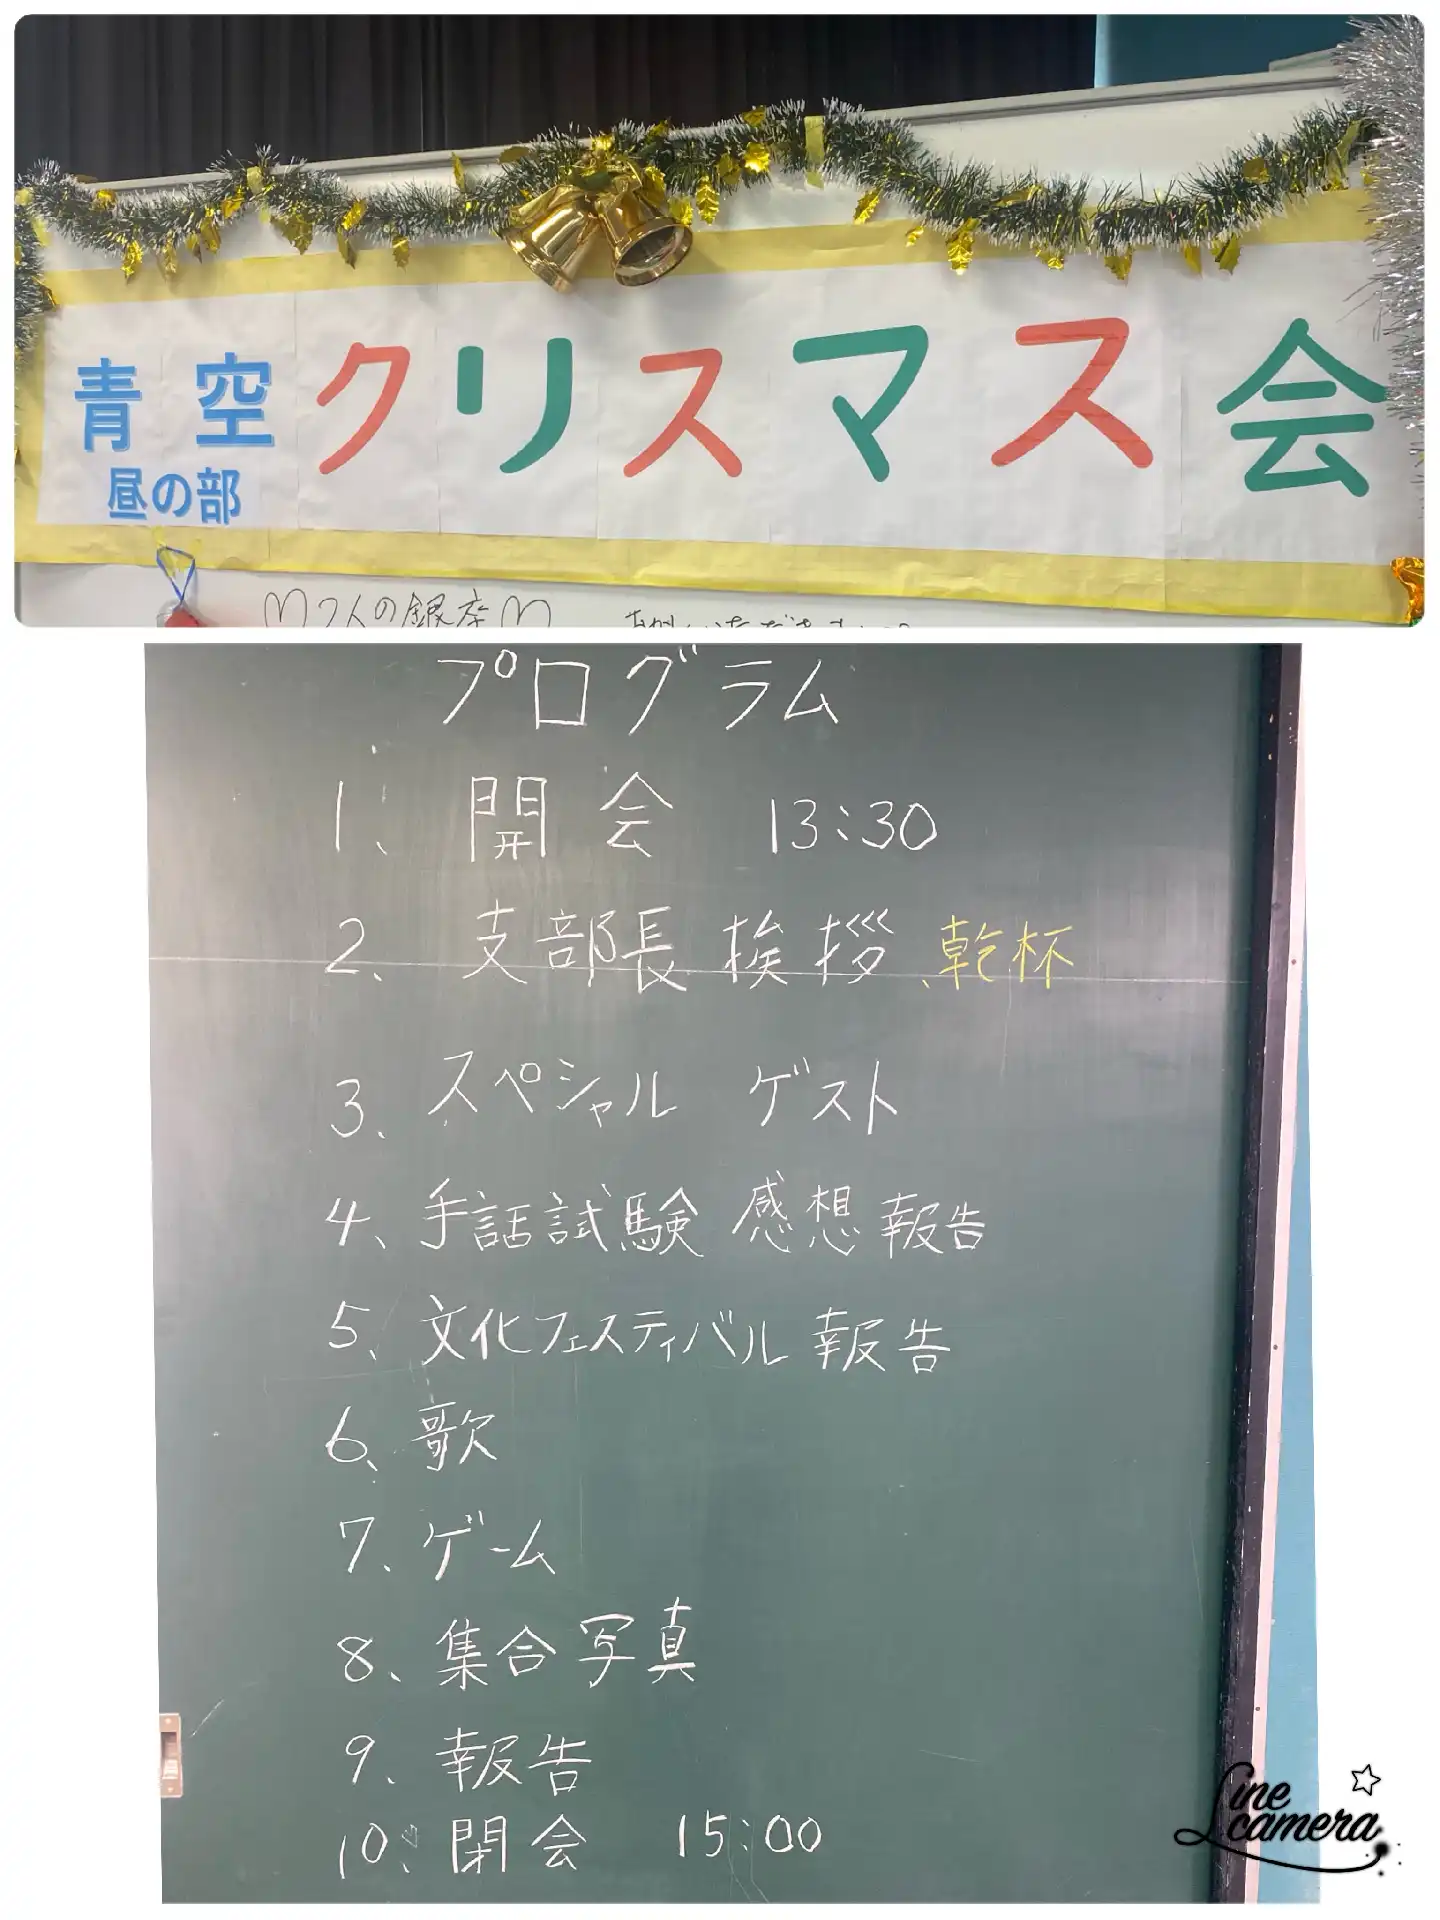 青空 クリスマス会
昼の部
二人の銀座
プログラム
1、開会 13:30
2、支部長挨拶、乾杯
3、スペシャル ゲスト
4、手話試験 感想 報告
5、文化フェスティバル報告
6、歌
7、ゲーム
8、集合写真
9、報告
10、閉会 15:00
Line camera